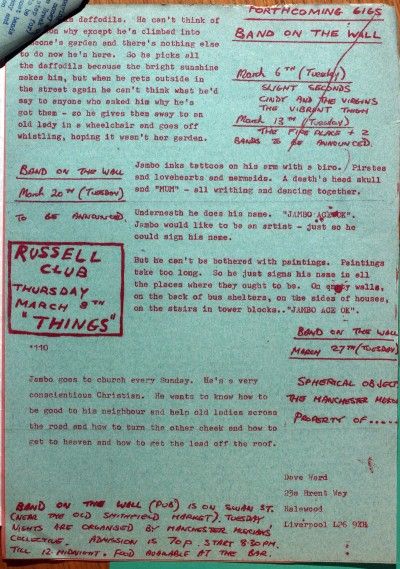 daffodils. He can't think of
why except he's climbed into
someone's garden and there's nothing else
to do now he's here. So he picks all
the daffodils because the bright sunshine
makes him, but when he gets outside in
the street again he can't think what he'd
say to anyone who asked him why he's
got them - so he gives them away to an
old lady in a wheelchair and goes off
whistling, hoping it wasn't her garden.
FORTHCOMING GIGS
BAND ON THE WALL
March 6TH (Tuesday)
SLIGHT SECONDS
CINDY AND THE VIRGINS
THE VIBRANT THIGH
March 13TH (Tuesday)
THE FIRE PLACE + 2
BANDS TO BE ANNOUNCED.
BAND ON THE WALL
March 20TH (TUESDAY)
TO BE ANNOUNCED
Jambo inks tattoos on his arm with a biro. Pirates
and lovehearts and mermaids. A death's head skull
and "MUM" - all writhing and dancing together.
Underneath he does his name. "JAMBO ACE OK".
Jambo would like to be an artist - just so he
could sign his name.
RUSSELL
CLUB
THURSDAY
MARCH 8TH
"THINGS"
But he can't be bothered with paintings. Paintings
take too long. So he just signs his name in all
the places where they ought to be. On empty walls,
on the back of bus shelters, on the sides of houses,
on the stairs in tower blocks.."JAMBO ACE OK".
BAND ON THE WALL
MARCH 27TH (TUESDAY)
SPHERICAL OBJECT
THE MANCHESTER
PROPERTY OF.....
*110
Jambo goes to church every Sunday. He's a very
conscientious Christian. He wants to know how to
be good to his neighbour and help old ladies across
the road and how to turn the other cheek and how to
get to heaven and how to get the lead off the roof.
Dave Ward
23a Brent Way
Halewood
Liverpool L26 9XH
BAND ON THE WALL (PUB) IS ON SWAN ST.
(NEAR THE OLD SMITHFIELD MARKET). TUESDAY
NIGHTS ARE ORGANISED BY MANCHESTER MUSICIANS'
COLLECTIVE. ADMISSION IS 70p. START 8.30PM.
TILL 12 MIDNIGHT. FOOD AVAILABLE AT THE BAR.